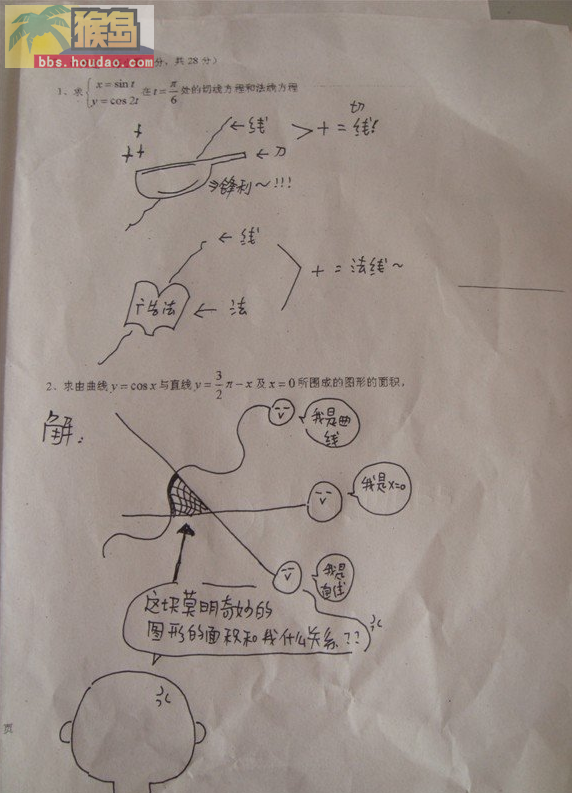 猴岛
bbs.houdao.com
分，共 28 分）
1、求 { x = sin t
y = cos 2t 在 t = π/6 处的切线方程和法线方程
← 线
← 刀
⇒锋利～!!!
> + = 切线!
← 线
← 法
+ = 法线～
2、求由曲线 y = cos x 与直线 y = 3/2 π − x 及 x = 0 所围成的图形的面积。
解：
我是曲
线
我是x=0
我是
直线
这块莫明奇妙的
图形的面积和我什么关系??
页